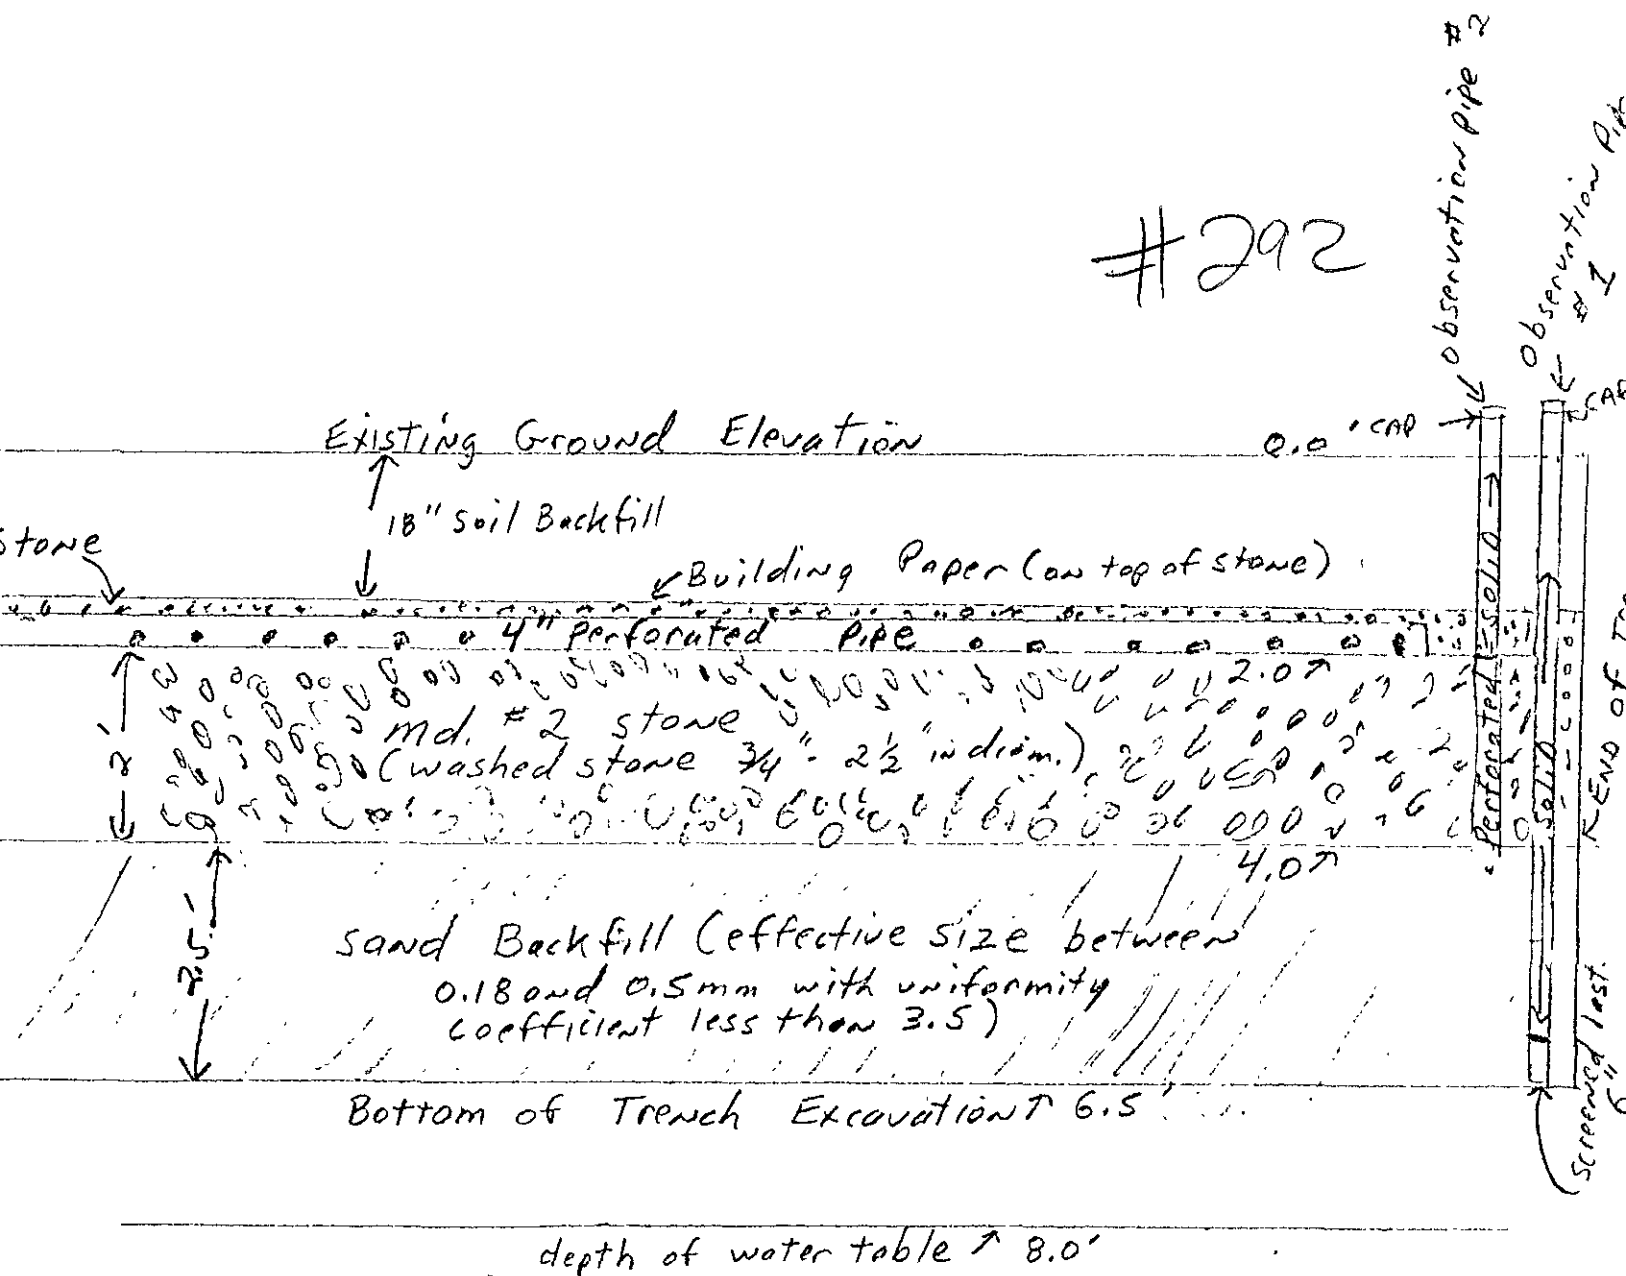 #292
observation pipe #2
Observation Pipe
# 1
CAP
CAP
Existing Ground Elevation
0.0'
18" Soil Backfill
Stone
Building Paper (on top of stone)
4" Perforated Pipe
2.0
2'
md. #2 stone
(washed stone 3/4" - 2 1/2" in diam.)
4.0
Perforated
Solid
Solid
END OF
2.5'
Sand Backfill (effective size between
0.18 and 0.5mm with uniformity
coefficient less than 3.5)
Screened last
6"
Bottom of Trench Excavation 6.5'
depth of water table 8.0'